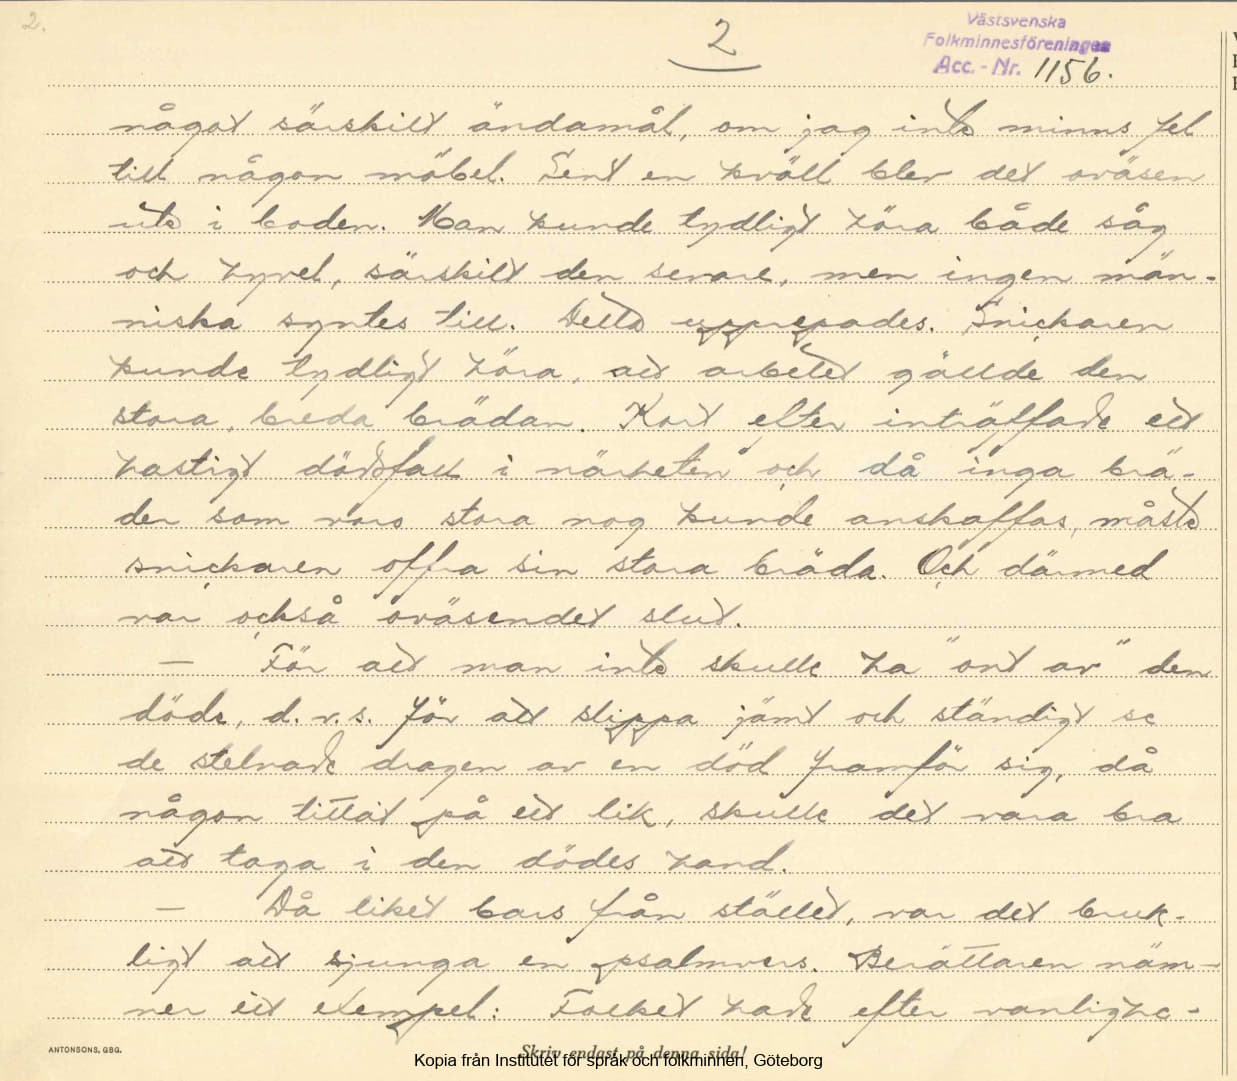 2.
2
Västsvenska
Folkminnesföreningen
Acc. - Nr. 1156.
något särskilt ändamål, om jag inte minns fel
till någon möbel. Sent en kväll blev det oväsen
ute i boden. Man kunde tydligt höra både såg
och hyvel, särskilt den senare, men ingen män-
niska syntes till. Detta upprepades. Snickaren
kunde tydligt höra, att arbetet gällde den
stora, breda brädan. Kort efter inträffade ett
hastigt dödsfall i närheten och då inga brä-
der som voro stora nog kunde anskaffas, måste
snickaren offra sin stora bräda. Och därmed
var också oväsendet slut.
— För att man inte skulle ha "ont av" den
döde, d.v.s. för att slippa jämt och ständigt se
de stelnade dragen av en död framför sig, då
någon tittat på ett lik, skulle det vara bra
att taga i den dödes hand.
— Då liket bars från stället, var det bruk-
ligt att sjunga en psalmvers. Berättaren näm-
ner ett exempel: Folket hade efter vanlighe-
ANTONSONS, GBG.
Skriv endast på denna sida!
Kopia från Institutet för språk och folkminnen, Göteborg